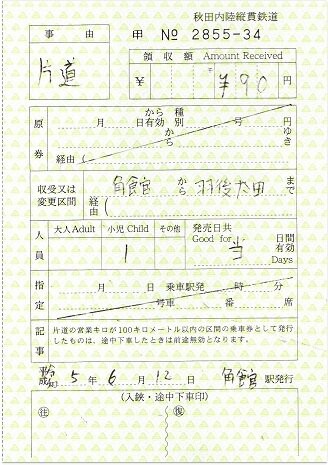 秋田内陸縦貫鉄道
事由 甲 № 2855-34
片道
領収額 Amount Received
¥ ¥90 円
原券
から 種
月 日有効 別 号 ゆき
から 円
経由
収受又は変更区間
角館 から 羽後太田 まで
経由(
人員
大人 Adult 小児 Child その他 発売日共 Good for 日間有効 Days
1 当
指定
月 日 乗車駅発 時 分
号車 番 席
記事
片道の営業キロが100キロメートル以内の区間の乗車券として発行したものは、途中下車したときは前途無効となります。
5年 6月 12日 角館 駅発行
(入鋏・途中下車印)
往 復